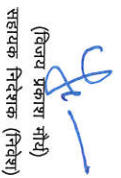 (विजय प्रकाश मौर्य)
सहायक निदेशक (निवेश)